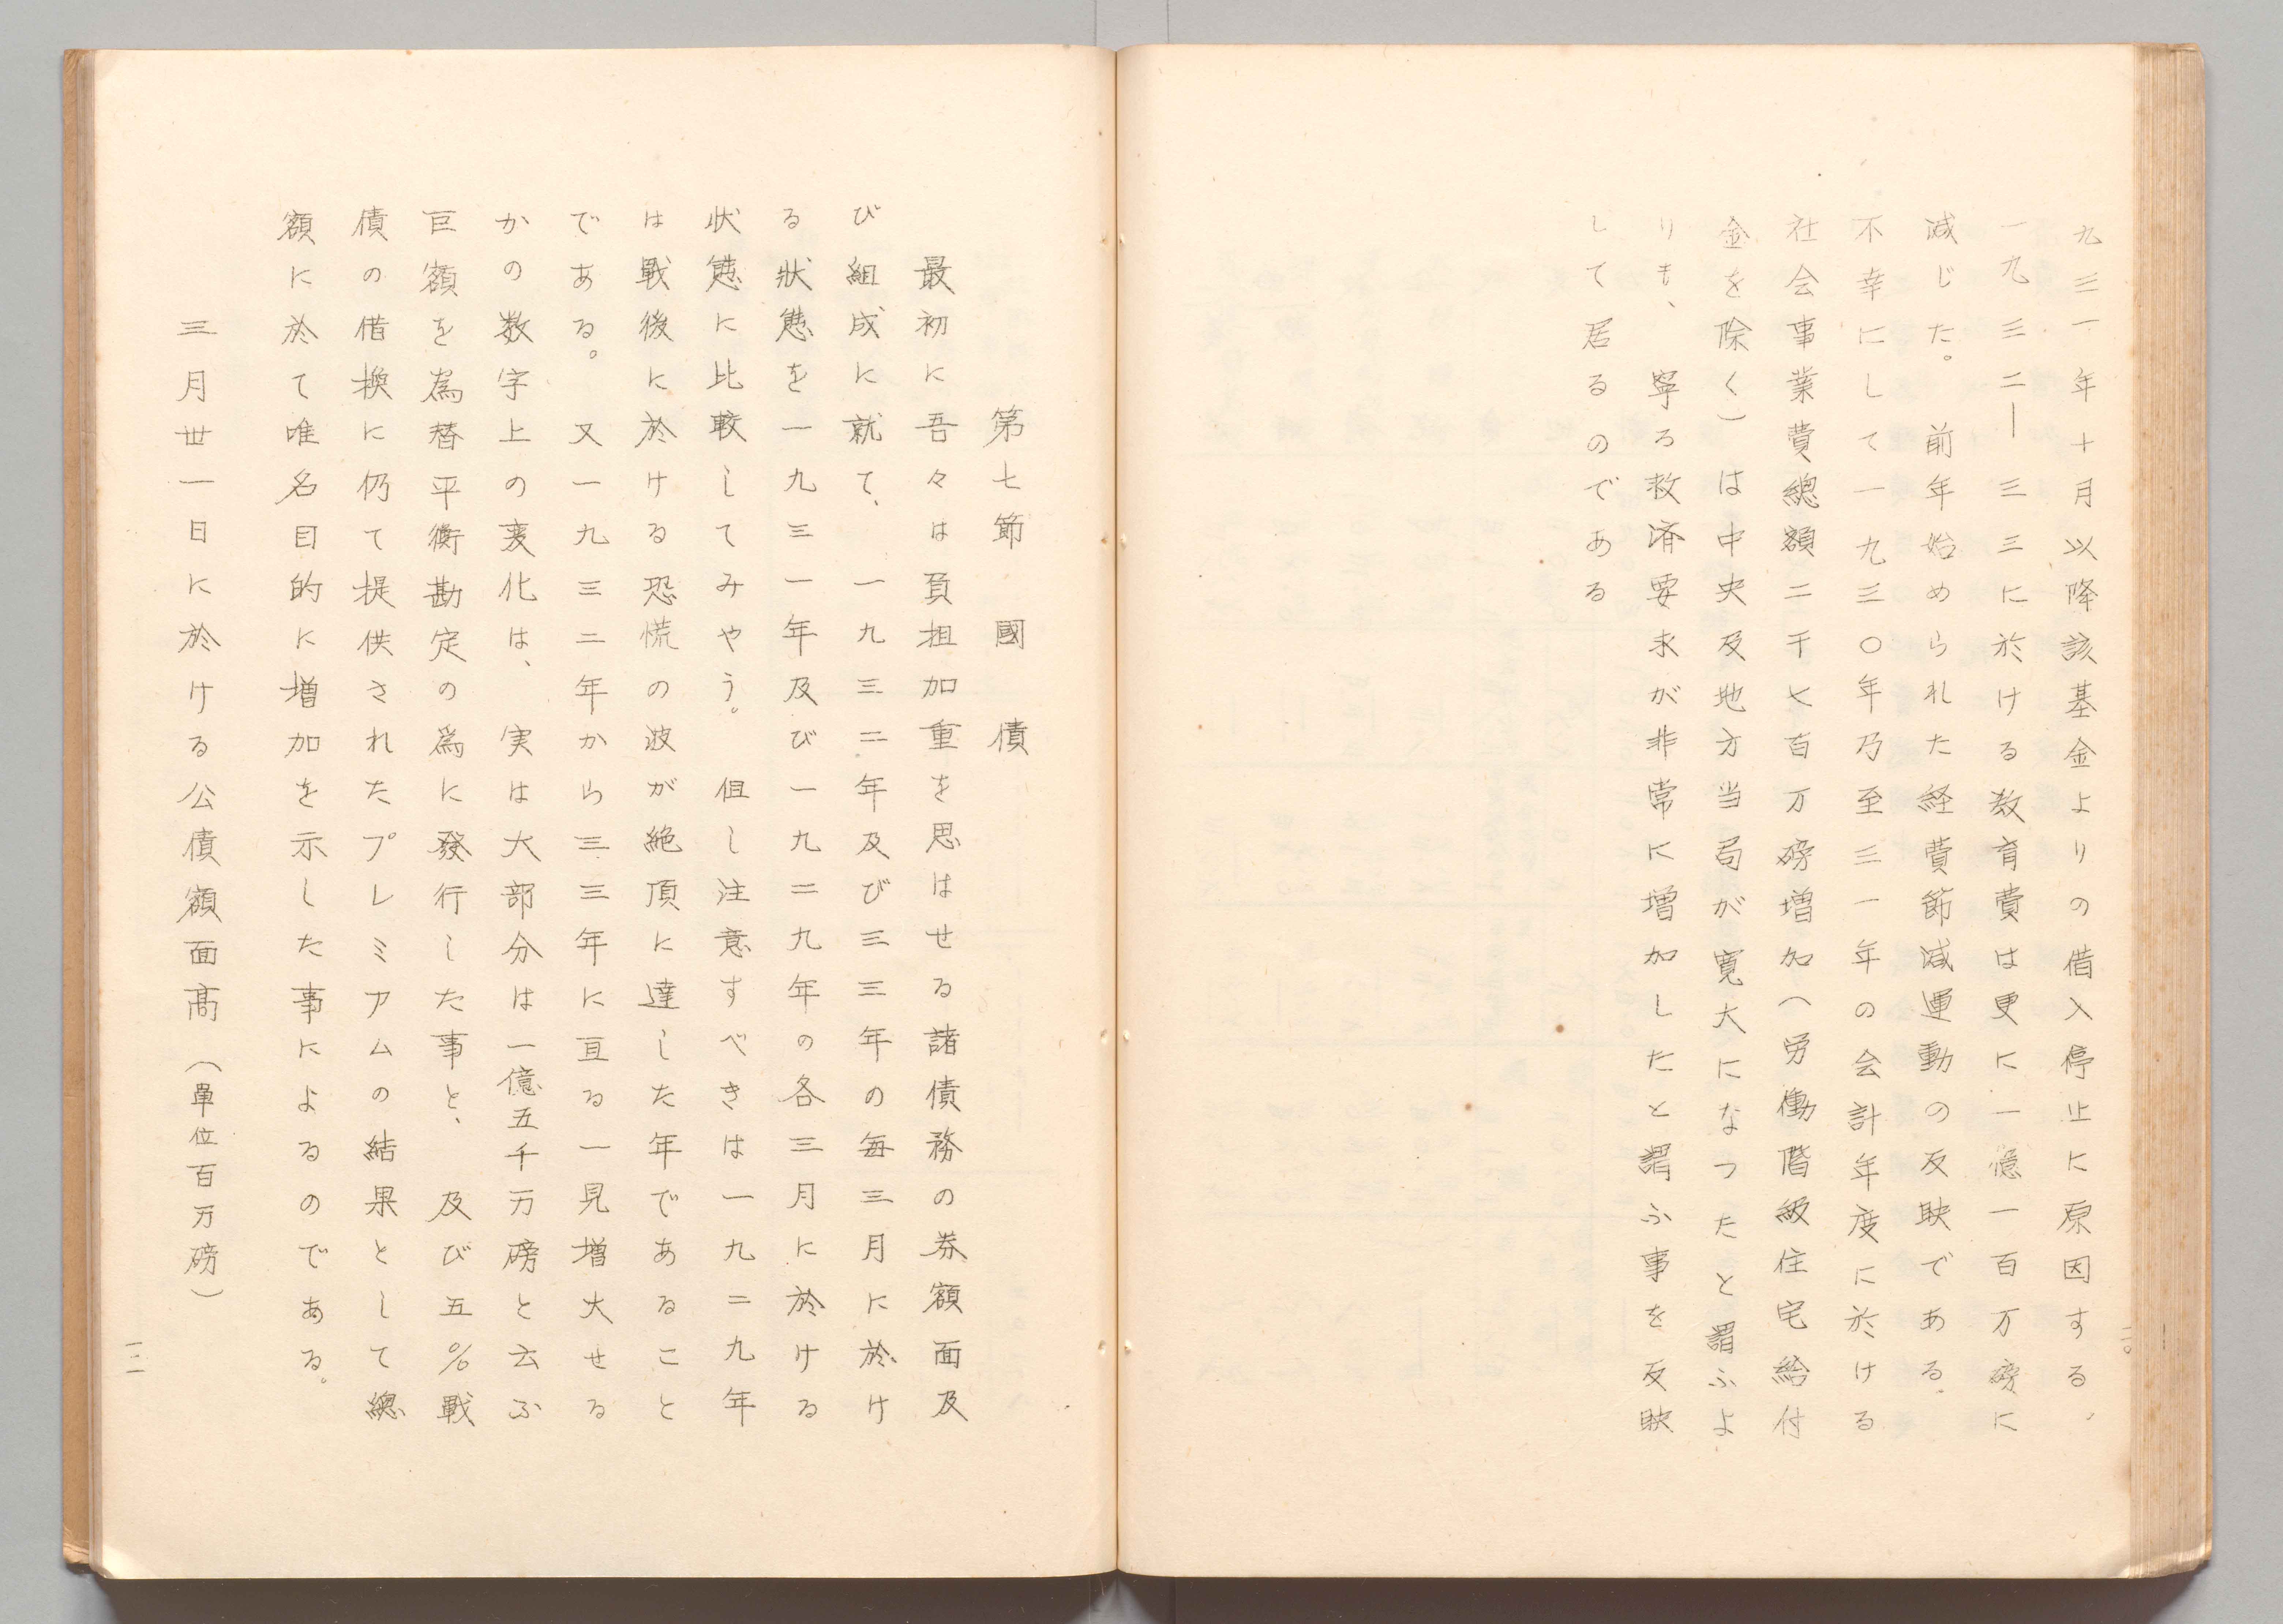 九三一年十月以降該基金よりの借入停止に原因する、
一九三二―三三に於ける教育費は更に一億一百万磅に
減じた。前年始められた経費節減運動の反映である。
不幸にして一九三〇年乃至三一年の会計年度に於ける
社会事業費總額二千七百万磅増加（労働階級住宅給付
金を除く）は中央及地方当局が寛大になつたと謂ふよ
りも、寧ろ救済要求が非常に増加したと謂ふ事を反映
して居るのである
二〇
第七節　國　債
最初に吾々は負担加重を思はせる諸債務の券額面及
び組成に就て、一九三二年及び三三年の毎三月に於け
る狀態を一九三一年及び一九二九年の各三月に於ける
状態に比較してみやう。但し注意すべきは一九二九年
は戰後に於ける恐慌の波が絶頂に達した年であること
である。又一九三二年から三三年に亘る一見増大せる
かの数字上の変化は、実は大部分は一億五千万磅と云ふ
巨額を為替平衡勘定の為に發行した事と、及び五％戰
債の借換に仍て提供されたプレミアムの結果として總
額に於て唯名目的に増加を示した事によるのである。
三月丗一日に於ける公債額面高（單位百万磅）
二一